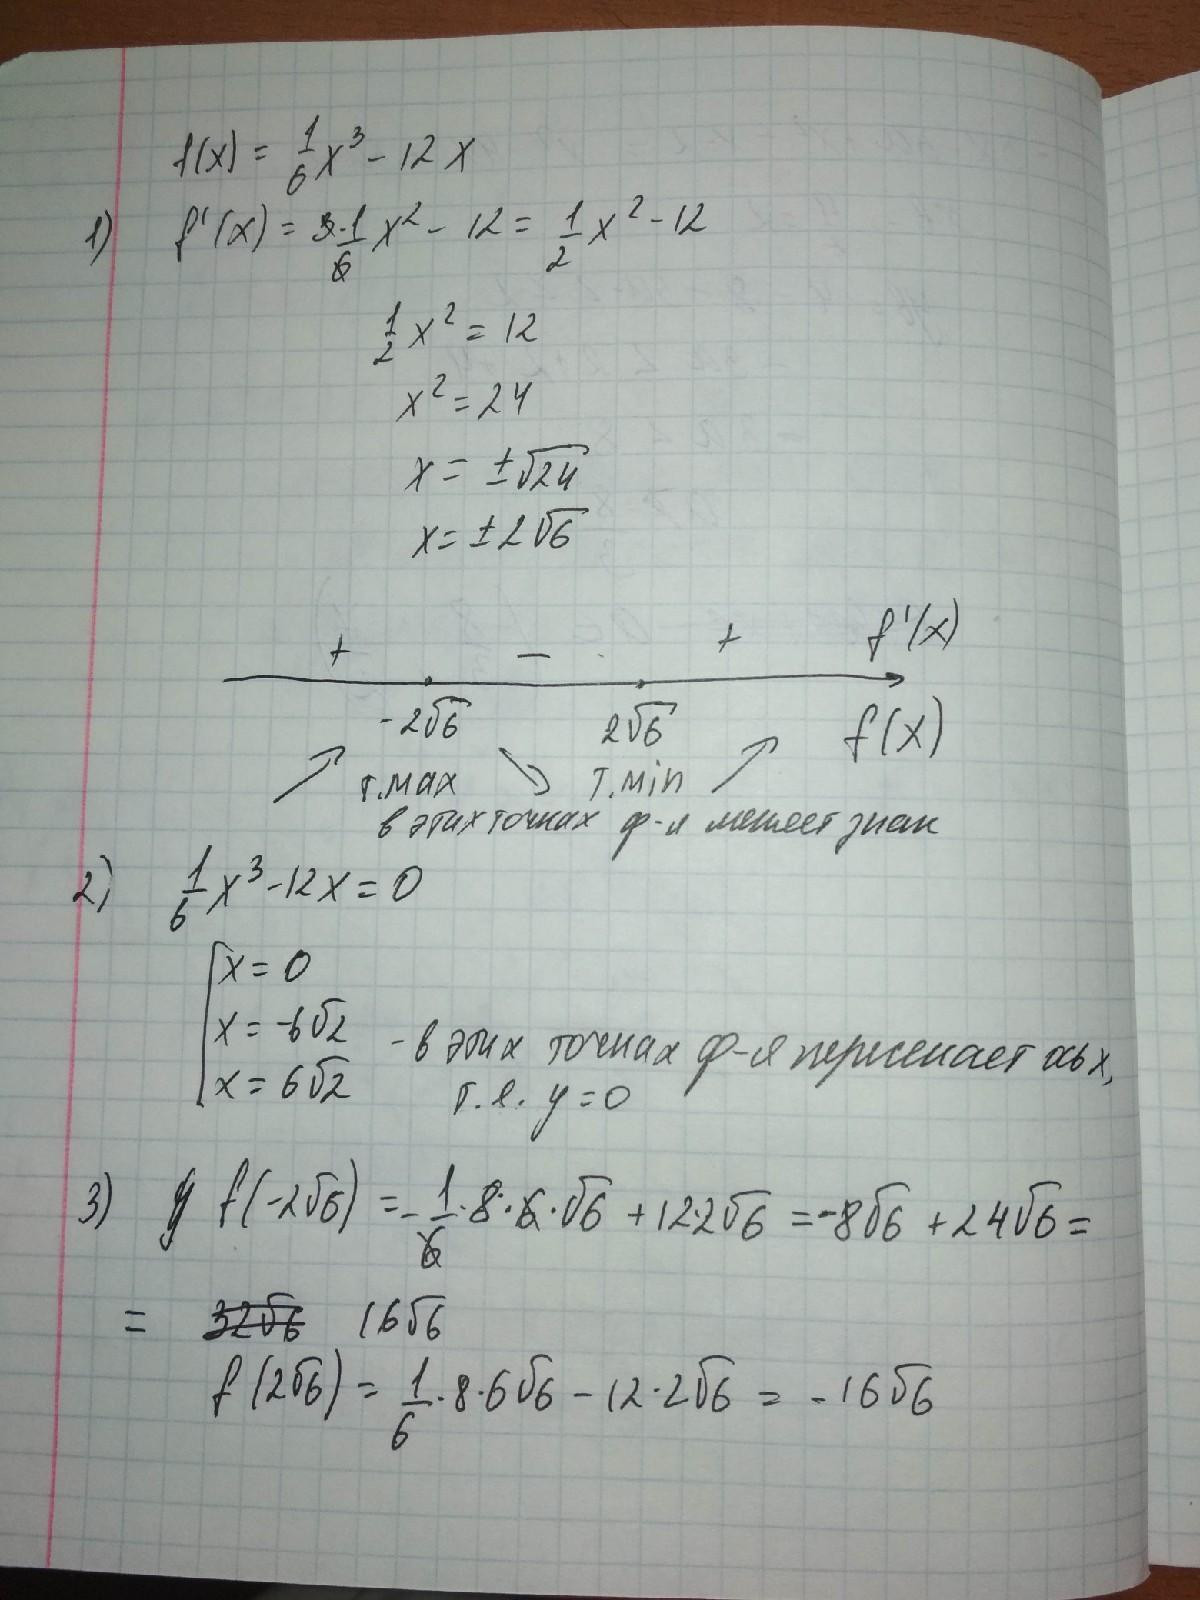 f(x) = 1/6 x³ - 12x
1) f'(x) = 3·1/6 x² - 12 = 1/2 x² - 12
1/2 x² = 12
x² = 24
x = ±√24
x = ±2√6
+ − + f'(x)
-2√6 2√6 f(x)
т.мах т.min
в этих точках ф-я меняет знак
2) 1/6 x³ - 12x = 0
x = 0
x = -6√2
x = 6√2
- в этих точках ф-я пересекает ось х,
т.е. y = 0
3) f(-2√6) = - 1/6 · 8 · 6 · √6 + 12·2√6 = -8√6 + 24√6 =
= 32√6 16√6
f(2√6) = 1/6 · 8 · 6√6 - 12·2√6 = -16√6